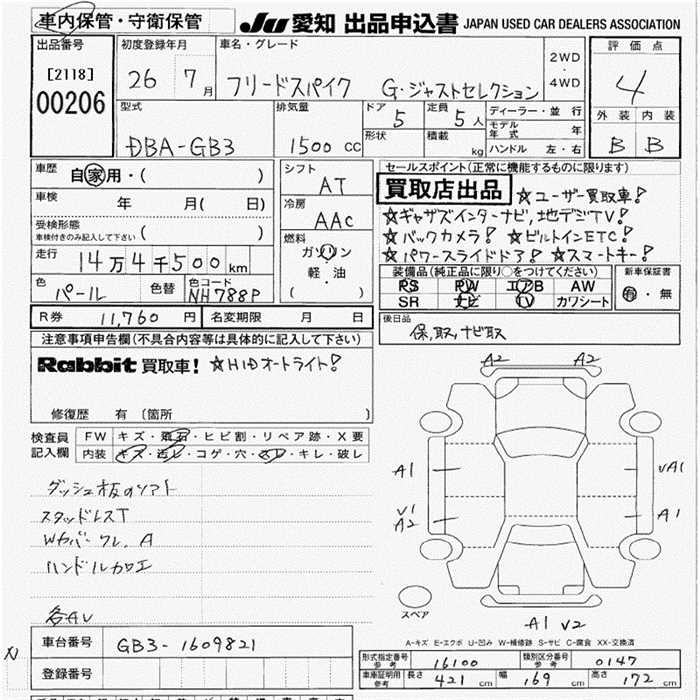 車内保管・守衛保管
JU 愛知 出品申込書 JAPAN USED CAR DEALERS ASSOCIATION
出品番号
[2118]
00206
初度登録年月
26 7月
車名・グレード
フリードスパイク G・ジャストセレクション
2WD
・
4WD
評価点
4
外装 内装
B B
型式
DBA-GB3
排気量
1500 CC
ドア 5
形状
定員 5人
積載 kg
ディーラー・並行
モデル年式 年
ハンドル 左・右
車歴
自家用・( )
車検
年 月(日)
受検形態
車検付きのみ記入して下さい ( )
走行
14万4千500km
色
パール
色替
色コード
NH788P
シフト
AT
冷房
AAC
燃料
ガソリン
軽・油
( )
セールスポイント(正常に機能するものに限ります)
買取店出品 ☆ユーザー買取車!
☆ギャザズインターナビ,地デジTV!
☆バックカメラ! ☆ビルトインETC!
☆パワースライドドア! ☆スマートキー!
装備品(純正品に限り○をつけてください)
PS PW エアB AW
SR ナビ TV カワシート
新車保証書
有・無
R券 11,760 円
名変期限 月 日
後日品
保,取,ナビ取
注意事項申告欄(不具合内容等は具体的に記入して下さい)
Rabbit 買取車! ☆HIDオートライト!
修復歴 有 〔箇所 〕
検査員
記入欄
FW キズ・飛石・ヒビ割・リペア跡・X要
内装 キズ・汚レ・コゲ・穴・スレ・キレ・破レ
ダッシュ板のソフト
スタッドレスT
Wカバーワレ,A
ハンドル加工
各AU
A2 A2
A1 UA1
U1
A2 A1
スペア
A1 U2
A-キズ E-エクボ U-凹み W-補修跡 S-サビ C-腐食 XX-交換済
車台番号
GB3-1609821
登録番号
形式指定番号
参考
16100
類別区分番号
参考
0147
車庫証明用
参考
長さ 421 cm
幅 169 cm
高さ 172 cm